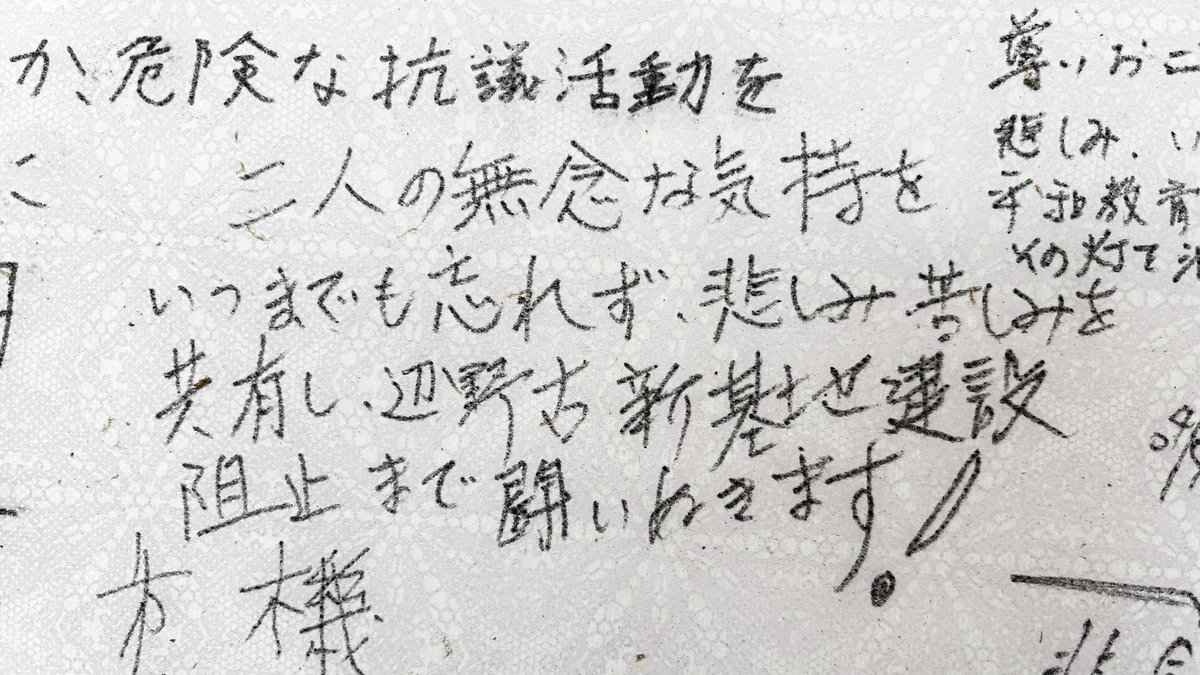 か、危険な抗議活動を
こ
二人の無念な気持を
いつまでも忘れず、悲しみ苦しみを
共有し、辺野古新基地建設
阻止まで闘いぬきます!
機
尊いお二
悲しみ、い
平和教育
その灯て消